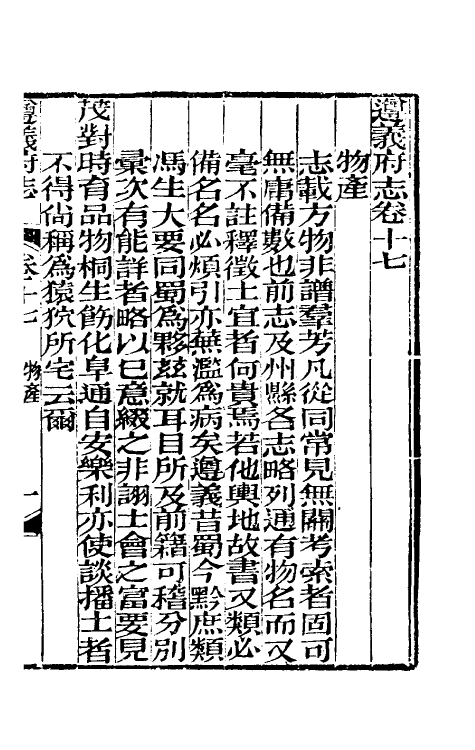 遵義府志卷十七
物產
志載方物非譜羣芳凡從同常見無關考索者固可
無庸備數也前志及州縣各志略列通有物名而又
毫不註釋徵土宜者何貴焉若他輿地故書又類必
備名名必煩引亦蕪濫爲病矣遵義昔蜀今黔庶類
馮生大要同蜀爲夥茲就耳目所及前籍可稽分別
彙次有能詳者略以已意綴之非詡土會之富要見
茂對時育品物桐生飭化阜通自安樂利亦使談播土者
不得尙稱爲猿狖所宅云爾
遵義府志 卷十七 物產 一